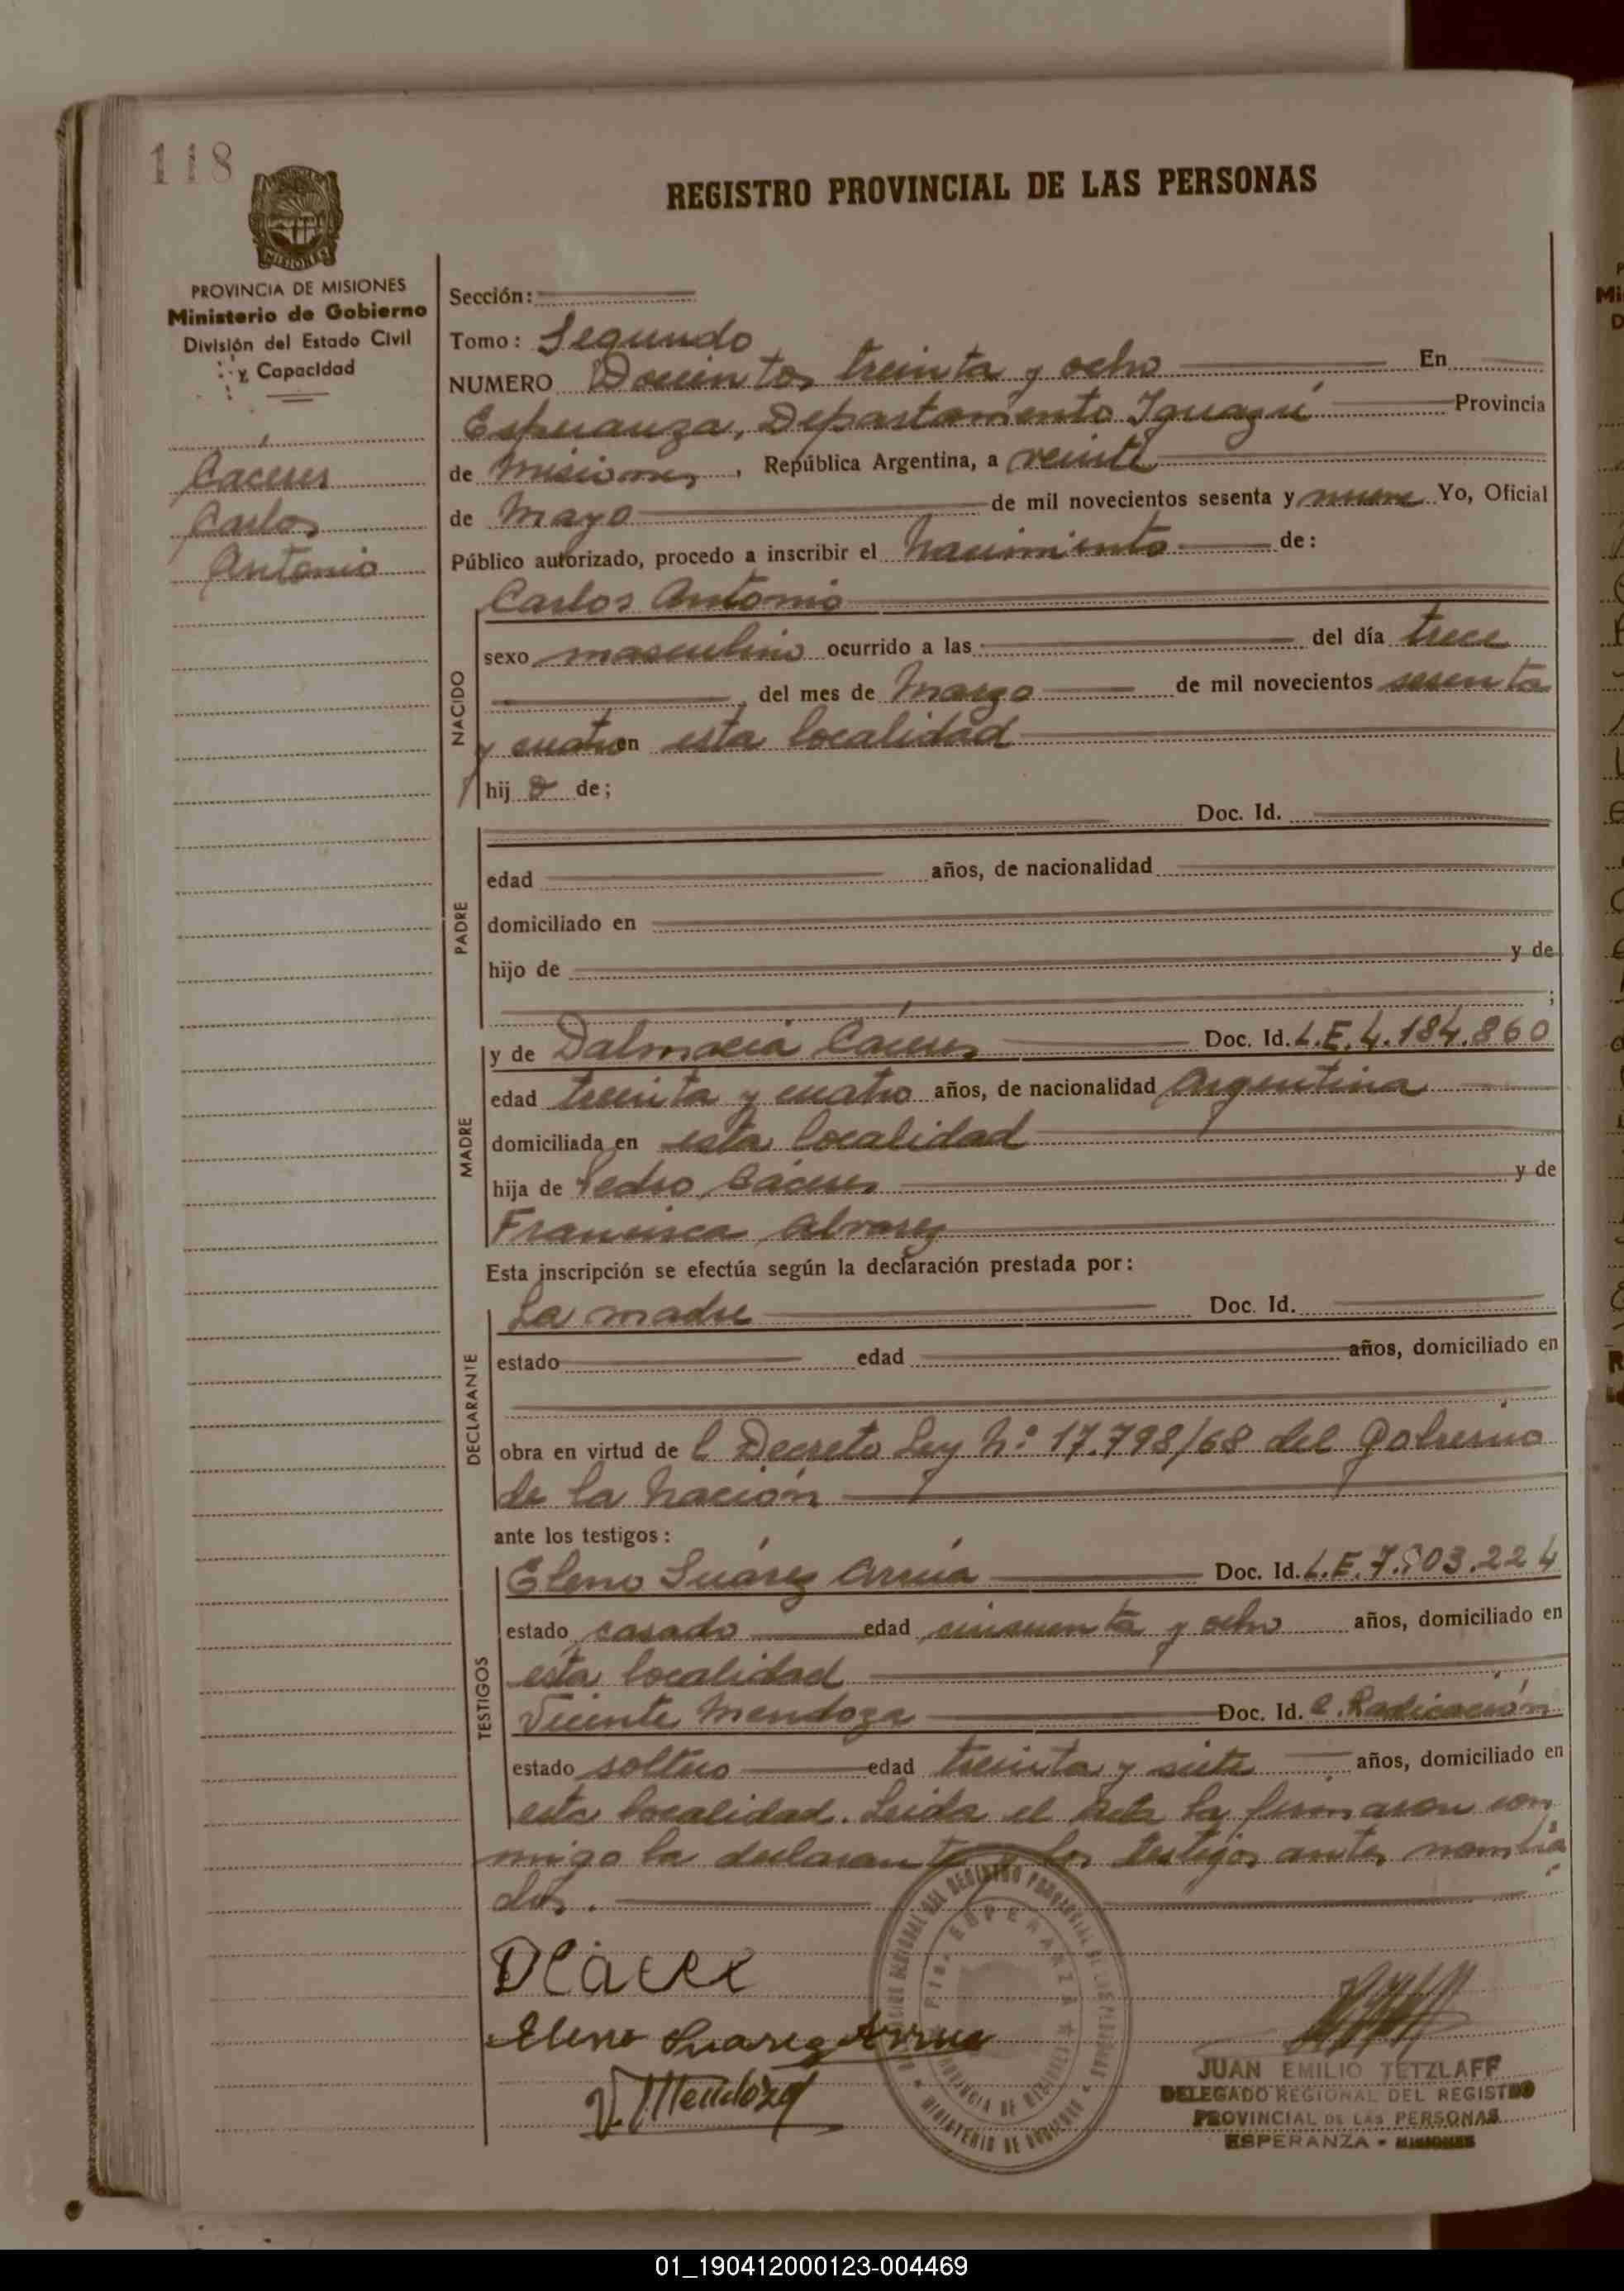 118
REGISTRO PROVINCIAL DE LAS PERSONAS
MISIONES
PROVINCIA DE MISIONES
Ministerio de Gobierno
División del Estado Civil
y Capacidad
Caceres
Carlos
Antonio
Sección:
Tomo: Segundo
NUMERO Docientos treinta y ocho En
Esperanza, Departamento Iguazú Provincia
de Misiones, República Argentina, a veinte
de Mayo de mil novecientos sesenta y nueve Yo, Oficial
Público autorizado, procedo a inscribir el Nacimiento de:
Carlos Antonio
NACIDO
sexo masculino ocurrido a las del día trece
del mes de Marzo de mil novecientos sesenta
y cuatro en esta localidad
hij o de;
PADRE
Doc. Id.
edad años, de nacionalidad
domiciliado en
hijo de y de
;
MADRE
y de Dalmacia Cáceres Doc. Id. L.E. 4.184.860
edad treinta y cuatro años, de nacionalidad Argentina
domiciliada en esta localidad
hija de Pedro Cáceres y de
Francisca Alvarez
Esta inscripción se efectúa según la declaración prestada por:
DECLARANTE
La madre Doc. Id.
estado edad años, domiciliado en
obra en virtud de l Decreto Ley Nº 17.798/68 del Gobierno
de la Nación
ante los testigos:
TESTIGOS
Eleno Suárez Arrúa Doc. Id. L.E. 7. 03.224
estado casado edad cincuenta y ocho años, domiciliado en
esta localidad
Vicente Mendoza Doc. Id. C. Radicación
estado soltero edad treinta y siete años, domiciliado en
esta localidad. Leida el acta la firmaron con
migo la declarante y los testigos antes nombra
dos.
D Cacere
Eleno Suarez Arrua
V. Mendoza
ESPERANZA
PROVINCIA DE MISIONES
MINISTERIO DE GOBIERNO
JUAN EMILIO TETZLAFF
DELEGADO REGIONAL DEL REGISTRO
PROVINCIAL DE LAS PERSONAS
ESPERANZA - MISIONES
01_190412000123-004469